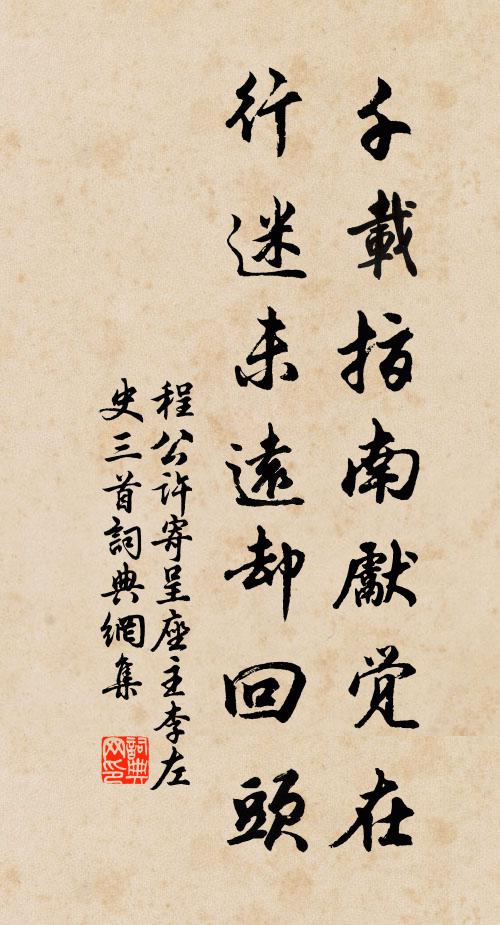 千載指南獻覚在
行迷未遠却回頭
程公許寄呈座主李左
史三首詞典網集
詞典网印